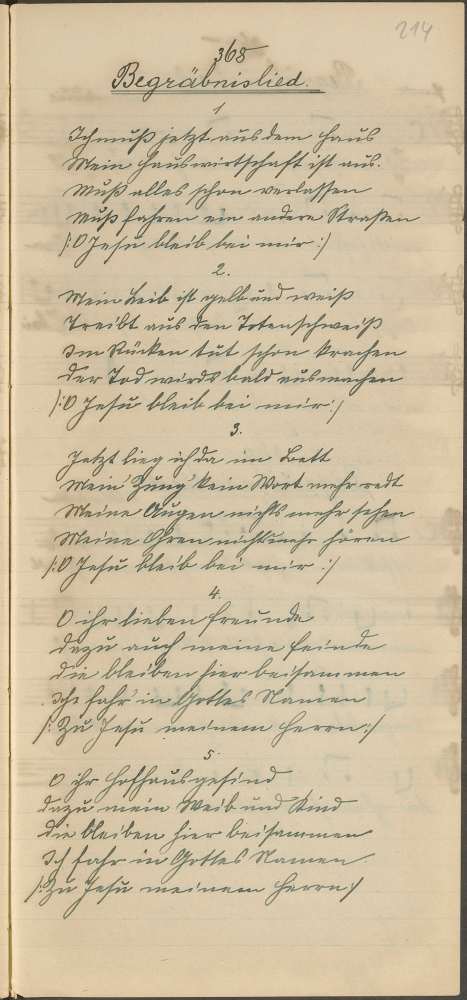 214
368
Begräbnislied.
1
Ich muß jetzt aus dem Haus
Mein Hauswirtschaft ist aus.
Muß alles schon verlassen
Muß fahren ein andere Straßen
/: O Jesu bleib bei mir :/
2.
Mein Leib ist gelb und weiß
Treibt aus den Totenschweiß
Im Rücken tut schon krachen
Der Tod wirds bald ausmachen
/: O Jesu bleib bei mir :/
3.
Jetzt lieg ich da im Bett
Mein Zung' kein Wort mehr redt
Meine Augen nichts mehr sehen
Meine Ohren nichts mehr hören
/: O Jesu bleib bei mir :/
4.
O ihr lieben Freunde
dazu auch meine Feinde
die bleiben hier beisammen
Ich fahr' in Gottes Namen
/: Zu Jesu meinem Herrn :/
5.
O ihr Hofhausgesind
dazu mein Weib und Kind
die bleiben hier beisammen
Ich fahr in Gottes Namen.
/: Zu Jesu meinem Herrn :/